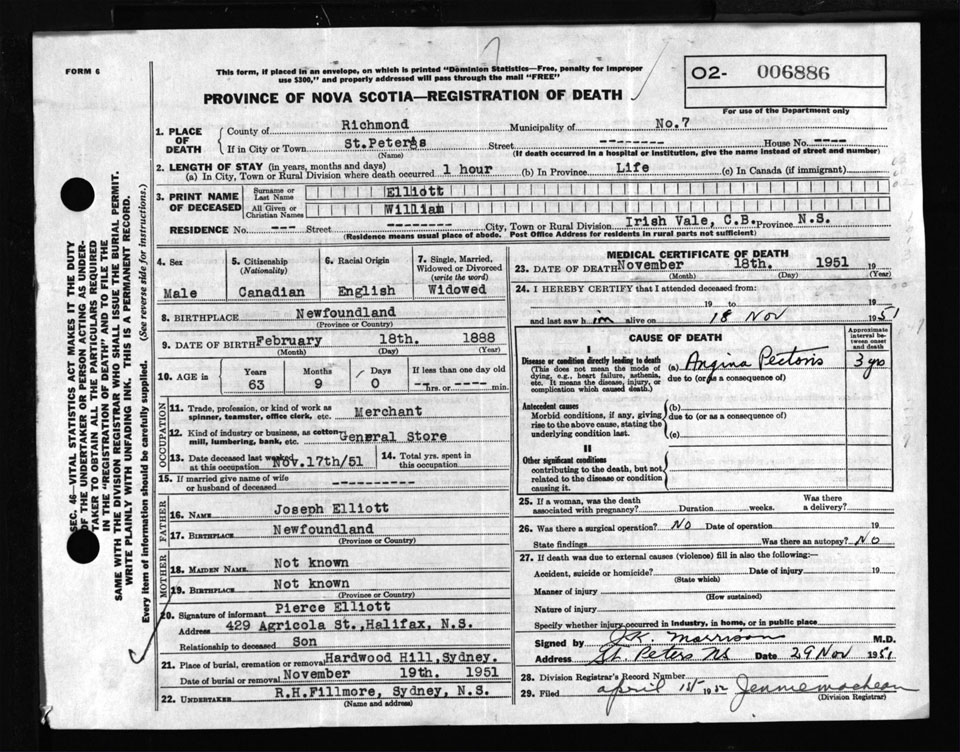 FORM 6
This form, if placed in an envelope, on which is printed "Dominion Statistics—Free, penalty for improper
use $300," and properly addressed will pass through the mail "FREE"
02- 006886
For use of the Department only
PROVINCE OF NOVA SCOTIA—REGISTRATION OF DEATH
1. PLACE OF DEATH
County of Richmond Municipality of No.7
If in City or Town St.Peters Street -------- House No. ----
(Name) (If death occurred in a hospital or institution, give the name instead of street and number)
2. LENGTH OF STAY (in years, months and days)
(a) In City, Town or Rural Division where death occurred 1 hour (b) In Province Life (c) In Canada (if immigrant)
3. PRINT NAME OF DECEASED
Surname or Last Name Elliott
All Given or Christian Names William
RESIDENCE No. --- Street -------- City, Town or Rural Division Irish Vale, C.B. Province N.S.
(Residence means usual place of abode. Post Office Address for residents in rural parts not sufficient)
4. Sex
Male
5. Citizenship (Nationality)
Canadian
6. Racial Origin
English
7. Single, Married, Widowed or Divorced (write the word)
Widowed
8. BIRTHPLACE Newfoundland
(Province or Country)
9. DATE OF BIRTH February 18th. 1888
(Month) (Day) (Year)
10. AGE in Years Months Days If less than one day old
63 9 0 ---- hrs. or ---- min.
OCCUPATION
11. Trade, profession, or kind of work as
spinner, teamster, office clerk, etc. Merchant
12. Kind of industry or business, as cotton
mill, lumbering, bank, etc. General Store
13. Date deceased last worked
at this occupation Nov.17th/51
14. Total yrs. spent in
this occupation
15. If married give name of wife
or husband of deceased ----------
FATHER
16. NAME Joseph Elliott
17. BIRTHPLACE Newfoundland
(Province or Country)
MOTHER
18. MAIDEN NAME Not known
19. BIRTHPLACE Not known
(Province or Country)
20. Signature of informant Pierce Elliott
Address 429 Agricola St.,Halifax, N.S.
Relationship to deceased Son
21. Place of burial, cremation or removal Hardwood Hill,Sydney.
Date of burial or removal November 19th. 1951
22. UNDERTAKER R.H.Fillmore, Sydney, N.S.
(Name and address)
MEDICAL CERTIFICATE OF DEATH
23. DATE OF DEATH November 18th. 1951 19
(Month) (Day) (Year)
24. I HEREBY CERTIFY that I attended deceased from:
19 to 19
and last saw him alive on 18 Nov 1951
CAUSE OF DEATH
Approximate interval between onset and death
I
Disease or condition directly leading to death
(This does not mean the mode of
dying, e.g., heart failure, asthenia,
etc. It means the disease, injury, or
complication which caused death.)
(a) Angina Pectoris 3 yrs
due to (or as a consequence of)
Antecedent causes
Morbid conditions, if any, giving
rise to the above cause, stating the
underlying condition last.
(b)
due to (or as a consequence of)
(c)
II
Other significant conditions
contributing to the death, but not
related to the disease or condition
causing it.
25. If a woman, was the death
associated with pregnancy? Duration weeks. Was there a delivery?
26. Was there a surgical operation? NO Date of operation 19
State findings Was there an autopsy? NO
27. If death was due to external causes (violence) fill in also the following:—
Accident, suicide or homicide? Date of injury 19
(State which)
Manner of injury
(How sustained)
Nature of injury
Specify whether injury occurred in industry, in home, or in public place
Signed by J.K. Morrison M.D.
Address St. Peters NS Date 29 Nov 1951
28. Division Registrar's Record Number
29. Filed april 1952 Jennie maclean
(Division Registrar)
SEC. 46—VITAL STATISTICS ACT MAKES IT THE DUTY
OF THE UNDERTAKER OR PERSON ACTING AS UNDER-
TAKER TO OBTAIN ALL THE PARTICULARS REQUIRED
IN THE "REGISTRATION OF DEATH" AND TO FILE THE
SAME WITH THE DIVISION REGISTRAR WHO SHALL ISSUE THE BURIAL PERMIT.
WRITE PLAINLY WITH UNFADING INK. THIS IS A PERMANENT RECORD.
Every item of information should be carefully supplied. (See reverse side for instructions.)